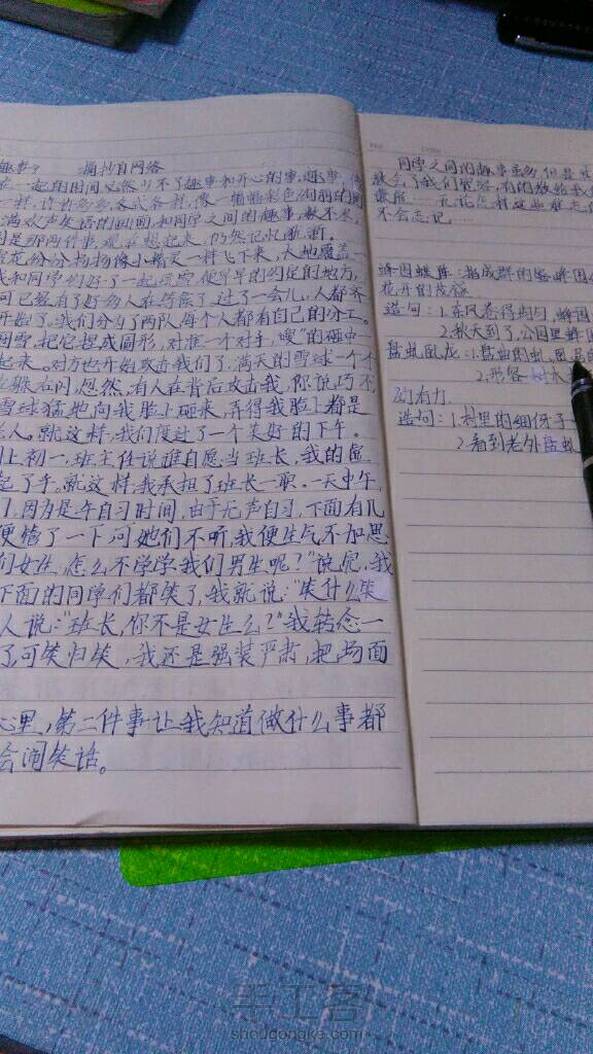 趣事? 摘抄自网络
在一起的时间总然少不了趣事和开心的事,趣事,像
一样,许许多多,各式各样,像一幅幅彩色绚丽的画
满欢声笑语的画面,和同学之间的趣事,数不来,
是那两件事,现在想起来,仍然记忆渐新。
花纷纷扬扬像小精灵一样飞下来,大地覆盖一
我和同学约好了一起玩雪,便早早的到定的地方,
可已经有了好多人在等候了,过了一会儿,人都齐
开始了。我们分为了两队,每个人都有自己的分工。
团雪,把它捏成圆形,对准一个对手,“嗖”的砸中
起来。对方也开始攻击我们了,满天的雪球一个个
躲右闪,忽然,有人在背后攻击我,你说巧不
雪球猛地向我脸上砸来,弄得我脸上都是
人。就这样,我们度过了一个美好的下午。
上初一,班主任说谁自愿当班长,我的虚
起了手。就这样,我承担了班长一职。一天中午
了,因为是午自习时间,由于无声自习,下面有几
便管了一下可她们不听,我便生气不加思
们女生,怎么不学学我们男生呢?”说完,我
下面的同学们都笑了,我就说:“笑什么笑
人说:“班长,你不是女生么?”我转念一
了,可笑归笑,我还是强装严肃,把场面
心里,第二件事让我知道做什么事都
会闹笑话。
同学之间的趣事
教会了我们
不会忘记……
蜂团蝶阵:指成群的
花开的茂
造句:1.东风卷得均匀,蜂团
2.秋天到了,公园里蜂
盘虬卧龙:1.盘曲的虬,
2.形容
有力.
造句:1.村里的细伢子
2.看到老外盘虬
手工客
shougongke.com